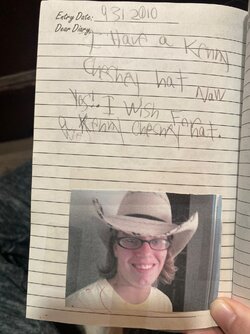 Entry Date: 931 2010
Dear Diary,
I Have a Kenny
Chesney hat
Now
Yes!! I Wish For a
Kenny Chesney hat.